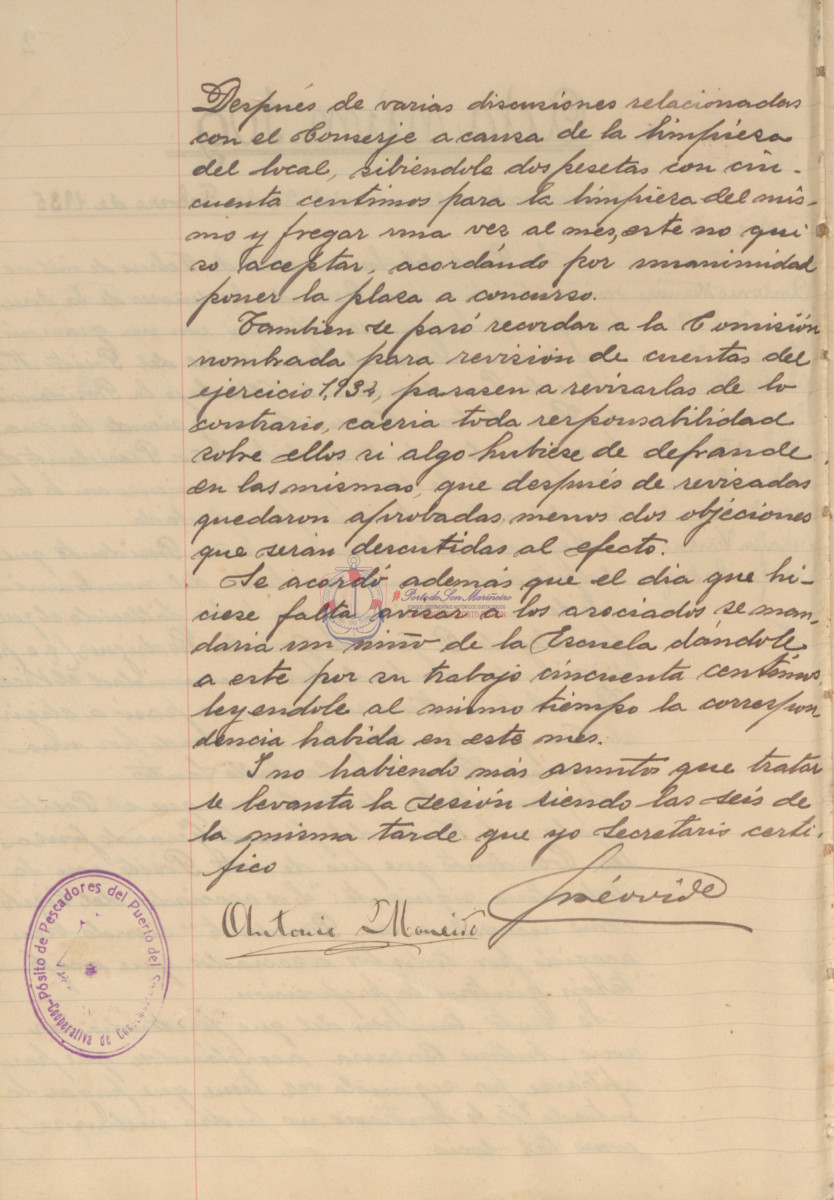 Después de varias discusiones relacionadas
con el Conserje a causa de la limpieza
del local, sibiéndole dos pesetas con cin-
cuenta centimos para la limpieza del mis-
mo y fregar una vez al mes, este no qui
so aceptar, acordándo por unanimidad
poner la plaza a concurso.
Tambien se pasó recordar a la Comisión
nombrada para revisión de cuentas del
ejercicio 1,934, pasasen a revisarlas de lo
contrario, caeria toda responsabilidad
sobre ellos si algo hubiese de defraude
en las mismas, que después de revisadas
quedaron aprobadas menos dos objeciones
que serán descutidas al efecto.
Se acordó además que el dia que hi-
ciese falta avisar a los asociados se man-
daria un niño de la Escuela dándole
a este por su trabajo cincuenta centimos,
leyendole al mismo tiempo la correspon
dencia habida en este mes.
I no habiendo más asuntos que tratar
se levanta la sesión siendo las seis de
la misma tarde que yo Secretario certi-
fico
Antonio
Pósito de Pescadores del Puerto del
Cooperativa de
Porto do Son Mariñeiro